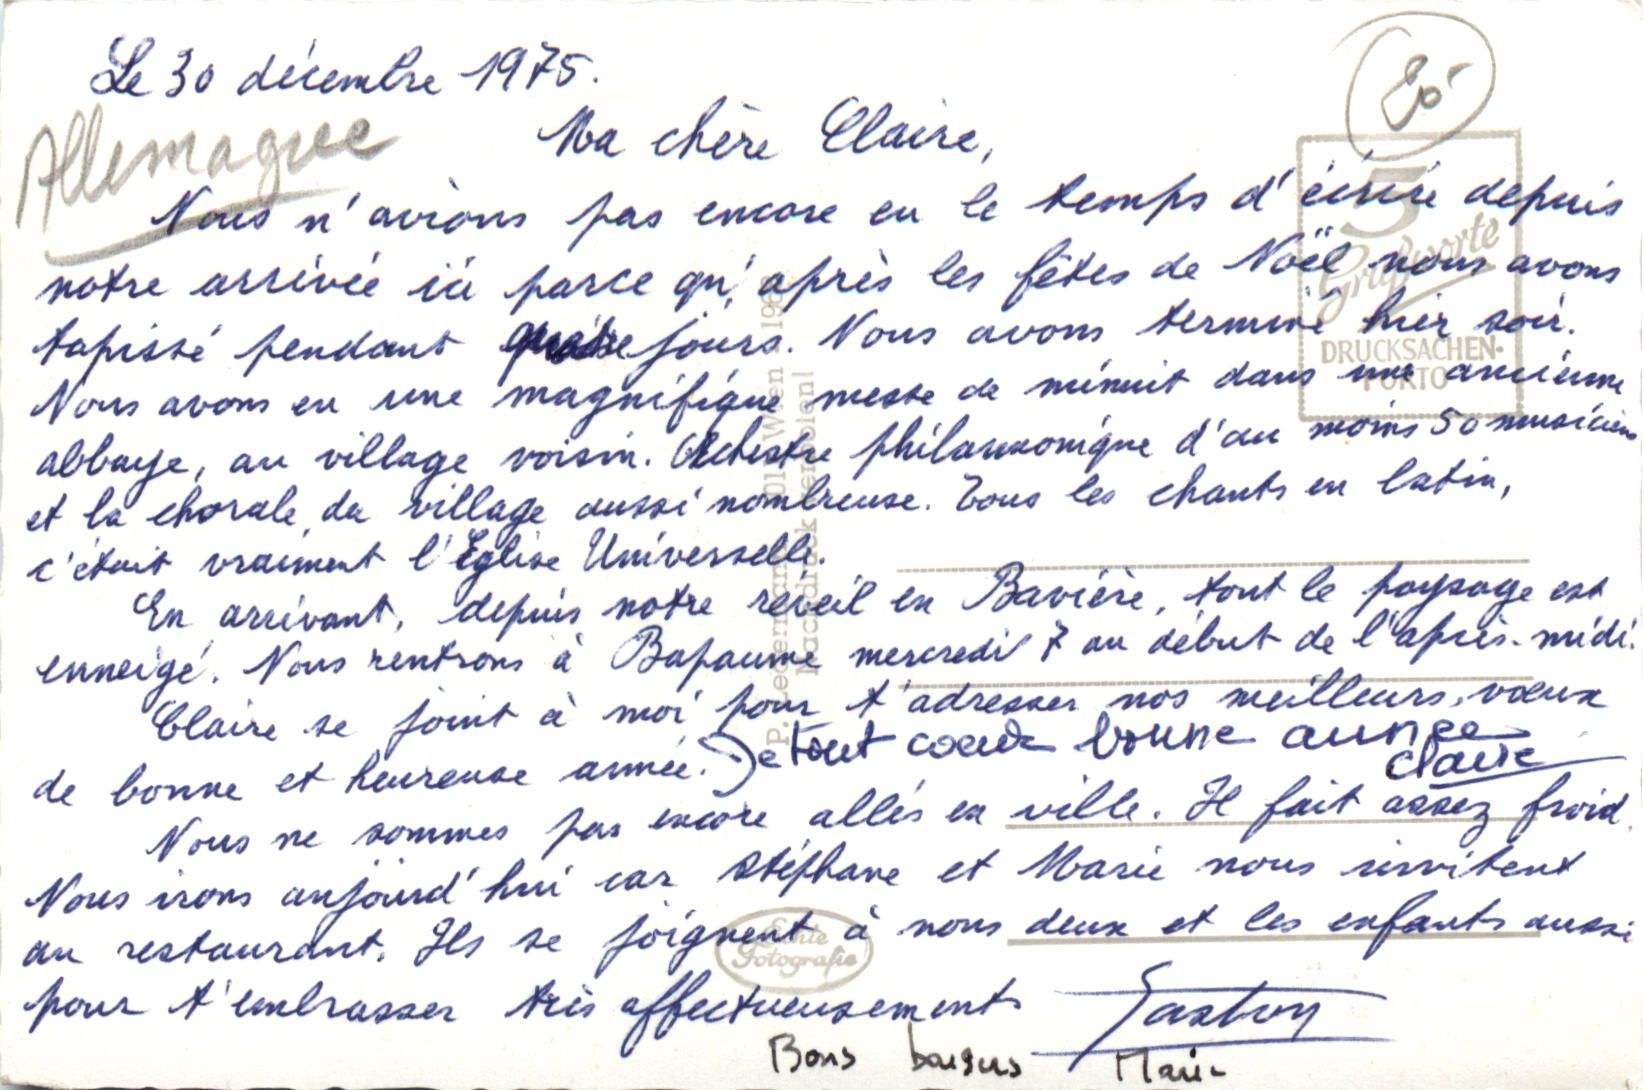 Le 30 décembre 1975.
Allemagne
Ma chère Claire,
Nous n'avions pas encore eu le temps d'écrire depuis
notre arrivée ici parce qu'après les fêtes de Noël nous avons
tapissé pendant quatre jours. Nous avons terminé hier soir.
Nous avons eu une magnifique messe de minuit dans une ancienne
abbaye, au village voisin. Orchestre philarmonique d'au moins 50 musiciens
et la chorale du village aussi nombreuse. Tous les chants en latin,
c'était vraiment l'Eglise Universelle.
En arrivant, depuis notre réveil en Bavière, tout le paysage est
enneigé. Nous rentrons à Bapaume mercredi 7 au début de l'après-midi.
Claire se joint à moi pour t'adresser nos meilleurs vœux
de bonne et heureuse année. De tout coeur bonne année
Claire
Nous ne sommes pas encore allés en ville. Il fait assez froid.
Nous irons aujourd'hui car Stéphane et Marie nous invitent
au restaurant. Ils se joignent à nous deux et les enfants aussi
pour t'embrasser très affectueusement
Gaston
Bons baisers Marie
5
Grußworte
DRUCKSACHEN-
PORTO
P. Ledermann Wien 196
Nachdruck
Echte
Fotografie